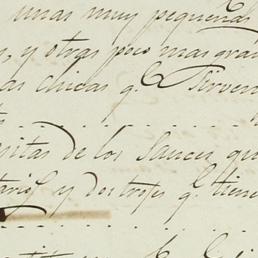 unas muy pequeñas
, y otras poco mas gran
as chicas q. sirven
itas de los Sauces que
y dos trojes q. tiene